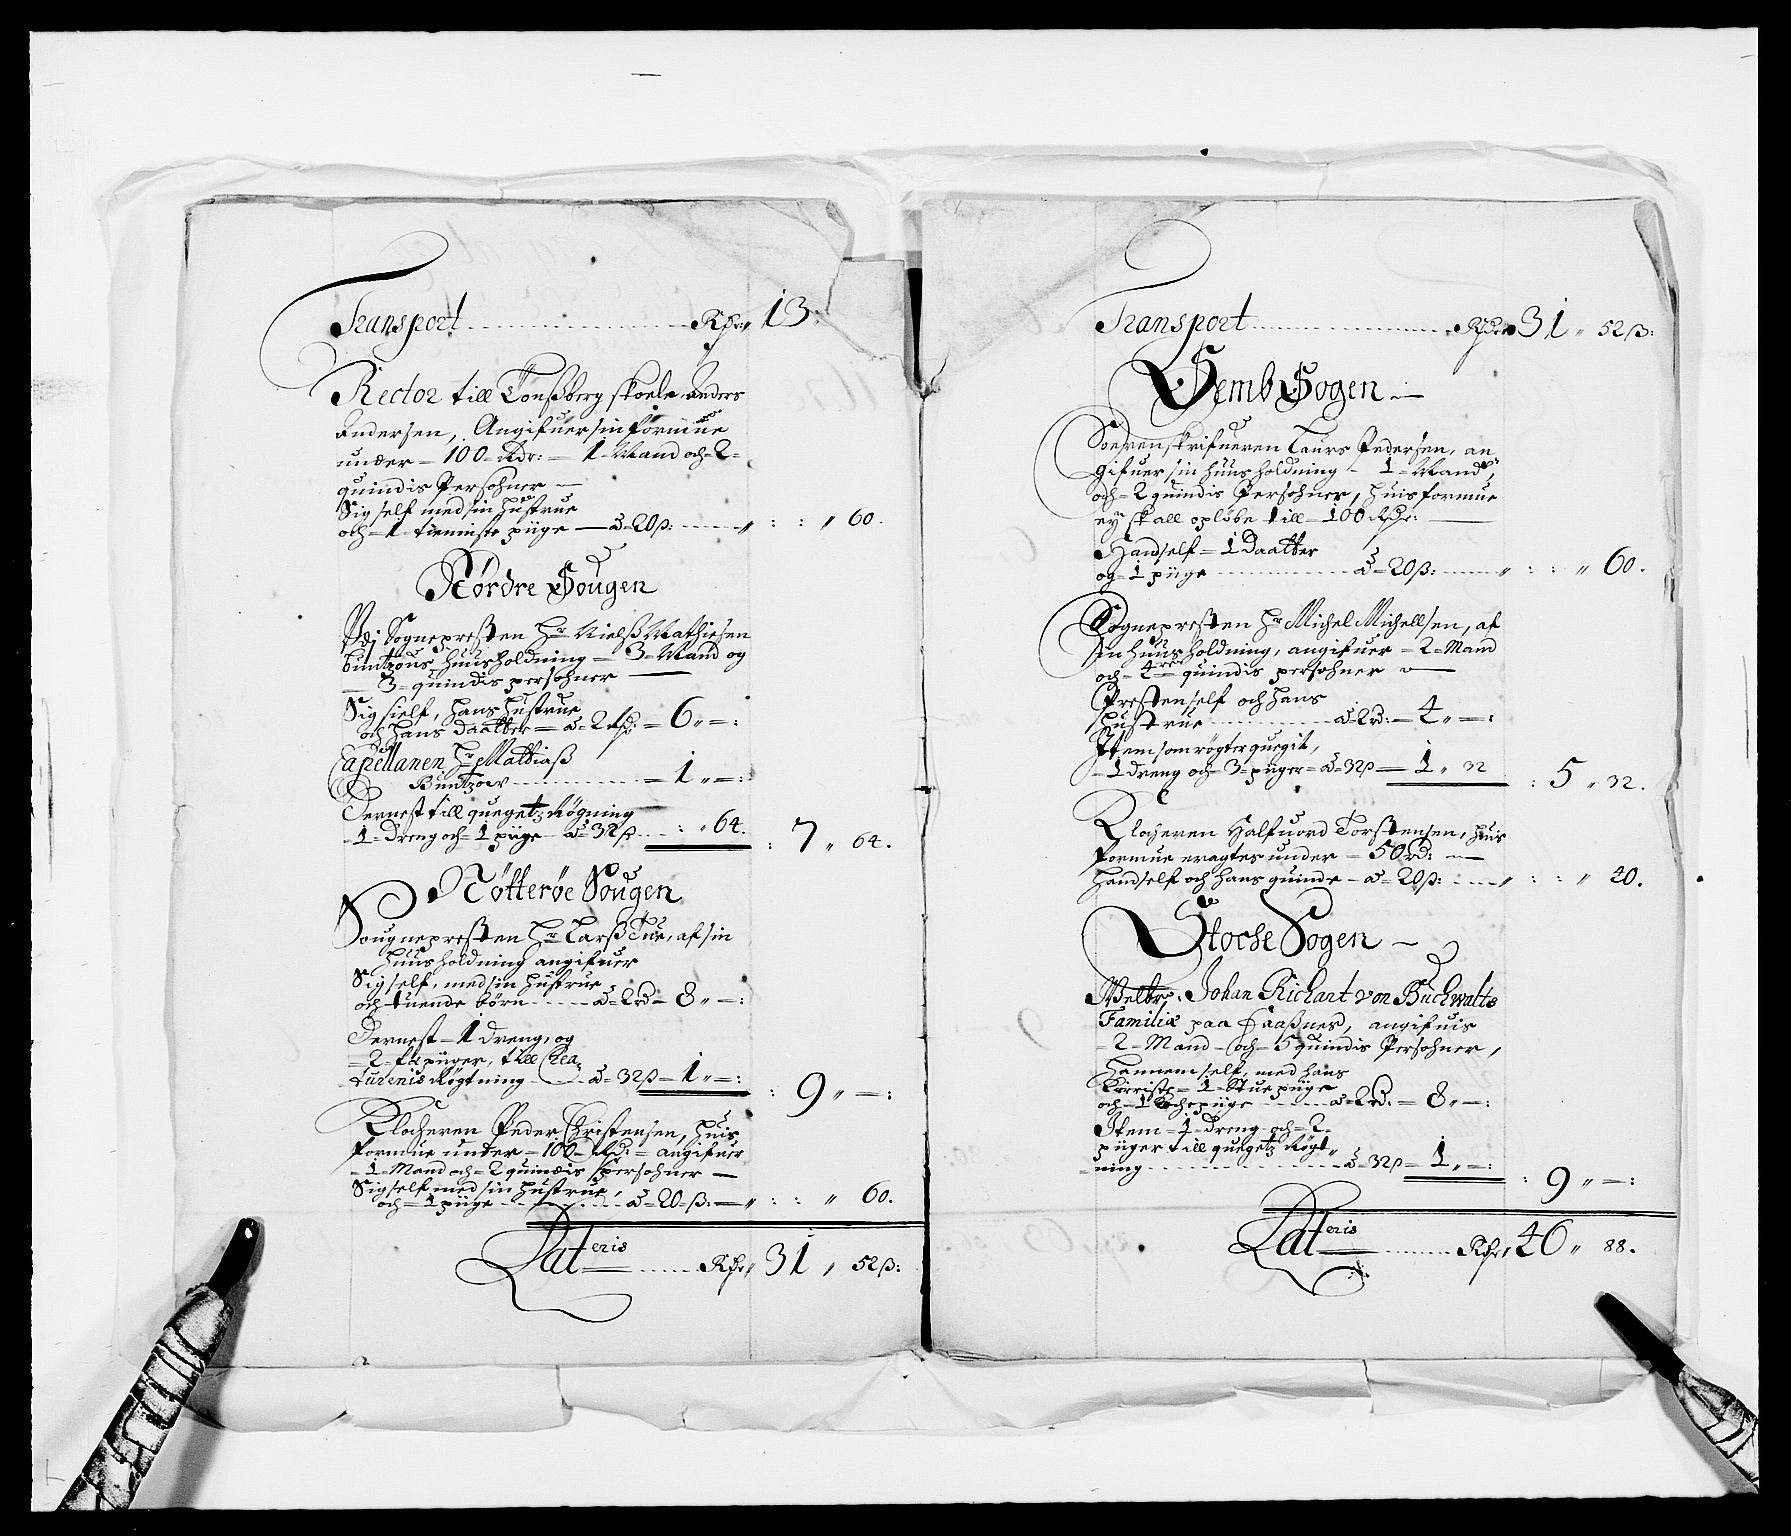 Transport ........ Rdr: 13.
Rector till Tonßberg skoele Anders
Andersen, Angifuer sin formue
under = 100 = Rdr: = 1 = Mand och = 2 =
quindis Persohner —
Sig self med sin Hustrue
och = 1 = tienniste piige — a = 20 ß: ...... „ : : „ 60.
Nørdre Sougen
Sogneprest en Hr Nielß Mathiesen
Buntzous huusholdning = 3 = Mand og
3 = quindis persohner —
Sig sielf, hans hustrue
och hans daatter = a = 2 rd: = 6 „ — :
Capellanen Hr Mattiaß
Buntzow ............ = 1 „ — :
Dernest till quegetz Røgning
1 = Dreng och = 1 piige — a = 32 ß ... : „ 64. : 7 „ 64.
Nøtterøe Sougen
Sougneprest en Hr Larß Tue, af sin
huusholdning angifuer
Sig self, med sin hustrue
och tuende børn ...... a = 2 rd = 8 „ — :
Dernest = 1 dreng, og
= 2 = piiger, till Crea
turenis Røgtning — a = 32 ß = 1 „ — : : 9 „ — :
Klocheren Peder Christensen, huis
formue under = 100 = Rd: = angifuer
1 = Mand och = 2 quindis persohner —
Sig self med sin hustrue,
och = 1 piige ........ a = 20 = ß: — „ : : „ 60.
Lateris ...... Rdr „ 31 „ 52 ß:
Transport ........ Rdr 31 „ 52 ß:
Semb Sogen —
Sorenskrifueren Laurs Pedersen, an
gifuer sin huusholdning = 1 = Mand
och = 2 quindis Persohner, huis formue
ey skall opløbe till = 100 Rdr: —
Hand self = 1 Daatter
og = 1 piige ............ a = 20 ß: ...... „ : : „ 60.
Sogneprest en Hr Michel Michellsen, af
sin huusholdning, angifuer = 2 = Mand
och = 4re quindis persohner —
Presten self och hans
hustrue ............ a = 2 rd: = 4 „ — :
Item som røgter quegit,
= 1 dreng och = 3 = piiger = a = 32 ß — 1 „ 32 : 5 „ 32.
Klocheren Halfuord Torstensen, huis
formue eragtes under = 50 rd: —
Hand self och hans quinde = a = 20 ß: ...... „ : : „ 40.
Stoche Sogen —
Johan Richart von Buchwalts
Familiæ paa Saaßnes, angifuis
= 2 = Mand = och = 5 quindis Persohner,
Hannem self, med hans
Kiæriste = 1 = Stue piige
och = 1 Kochepiige ...... a = 2 rd: = 8 „ — :
Item = 1 = dreng = och = 2 =
piiger till quegetz Røgt„
ning ............ a = 32 ß = 1 „ — : : 9 „ — :
Lateris ...... Rdr „ 46 „ 88.